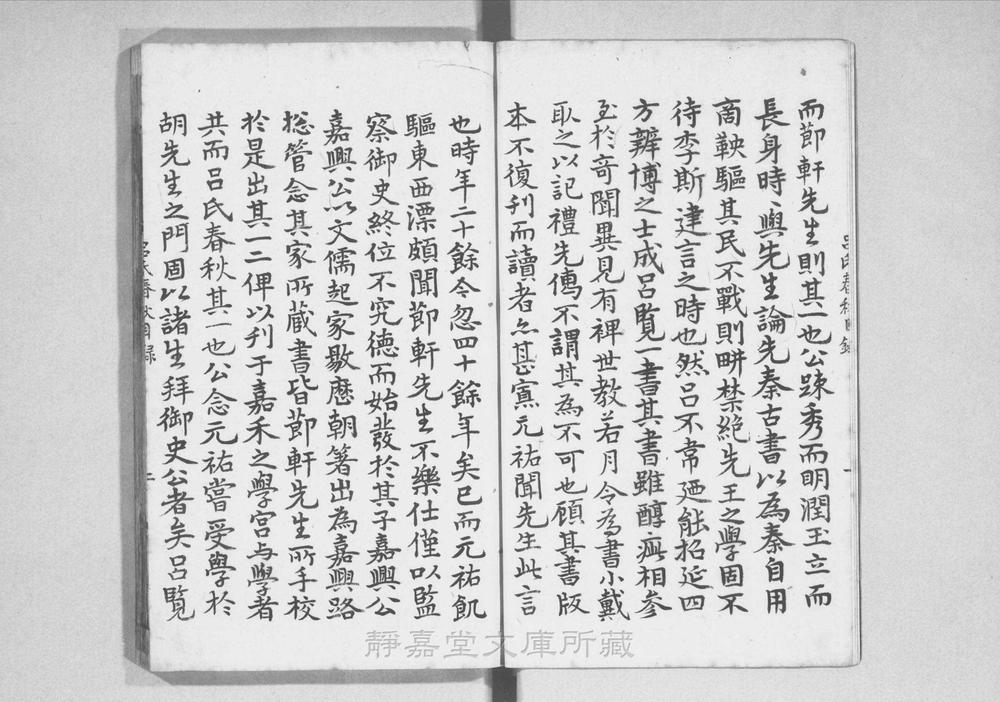 而節軒先生則其一也公踈秀而明潤玉立而
長身時、與先生論先秦古書以為秦自用
商鞅驅其民不戰則畊禁絕先王之學固不
待李斯建言之時也然呂不韋廼能招延四
方辨博之士成呂覽一書其書雖醇疵相參
至於奇聞異見有裨世教若月令為書小戴
取之以記禮先傳不謂其為不可也顧其書版
本不復刋而讀者亦甚寡元祐聞先生此言
呂氏春秋目錄
一
也時年二十餘今忽四十餘年矣已而元祐飢
驅東西漂頗聞節軒先生不樂仕僅以監
察御史終位不究德而始發於其子嘉興公
嘉興公以文儒起家敭歷朝箸出為嘉興路
捴管念其家所藏書皆節軒先生所手校
於是出其一二俾以刋于嘉禾之學宮与學者
共而呂氏春秋其一也公念元祐嘗受學於
胡先生之門固以諸生拜御史公者矣呂覽
呂氏春秋目録
二
靜嘉堂文庫所藏